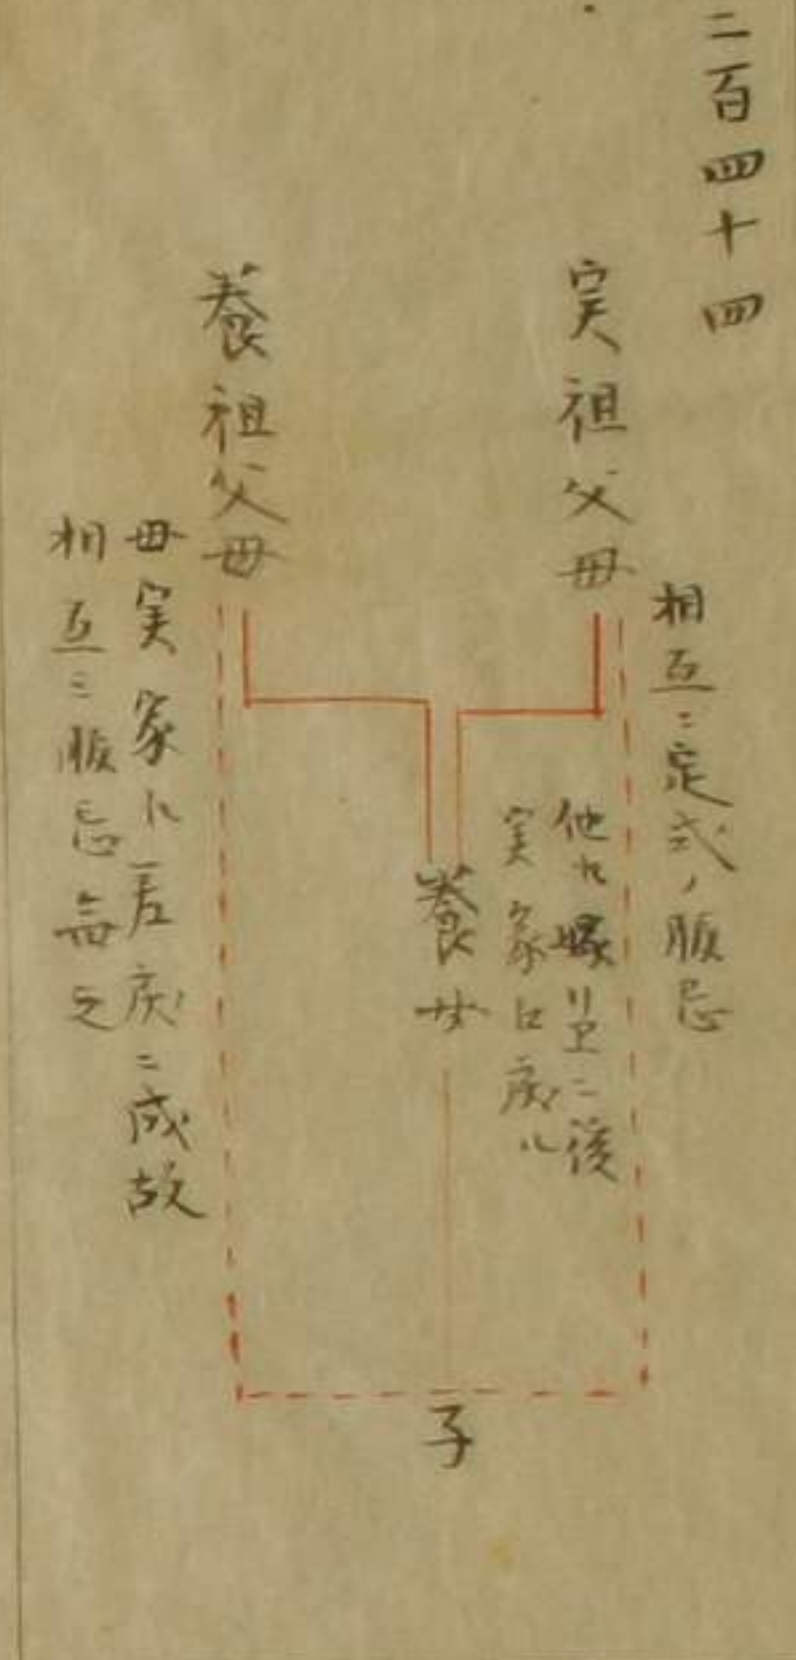 二百四十四
実祖父母
相互ニ定式ノ服忌
他ヘ嫁リ 二後
実家口戻ル
養女
養祖父母
母実家ヘ差戻ニ成故
相互ニ服忌無之
子